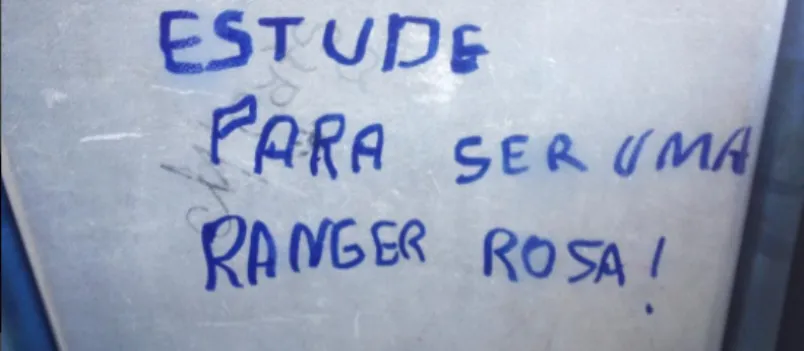 ESTUDE
PARA SER UMA
RANGER ROSA!